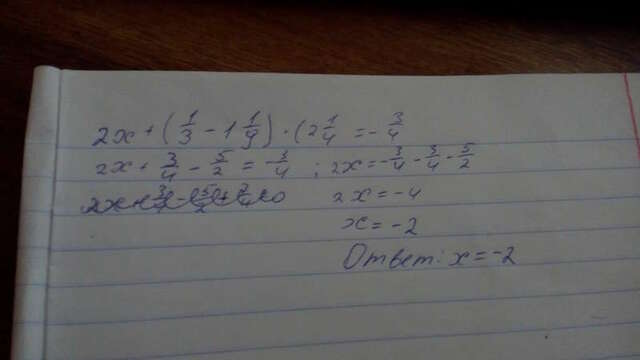 2x + (1/3 - 1 1/9) · (2 1/4 = - 3/4
2x + 3/4 - 5/2 = - 3/4 ; 2x = - 3/4 - 3/4 - 5/2
2x = -4
x = -2
Ответ: x = -2